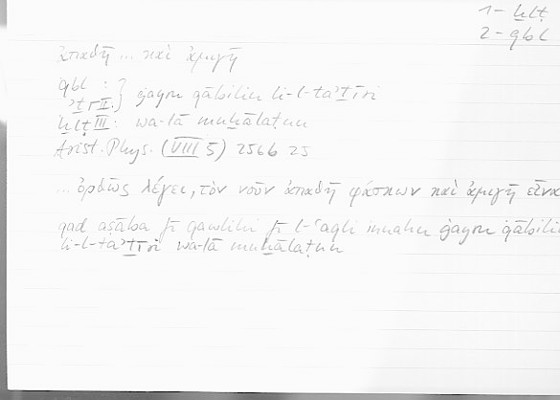 1- ḫlṭ
2- qbl
ἀπαθῆ ... καὶ ἀμιγῆ
qbl : }
ʾṯr II. } ġayru qābilin li-l-taʾṯīri
ḫlṭ III : wa-lā muḫālaṭun
Arist. Phys. (VIII 5) 256b 25
... ὀρθῶς λέγει, τὸν νοῦν ἀπαθῆ φάσκων καὶ ἀμιγῆ εἶνα
qad aṣāba fī qawlihi fī l-ʿaqli innahu ġayru qābilin
li-l-taʾṯīri wa-lā muḫālaṭun